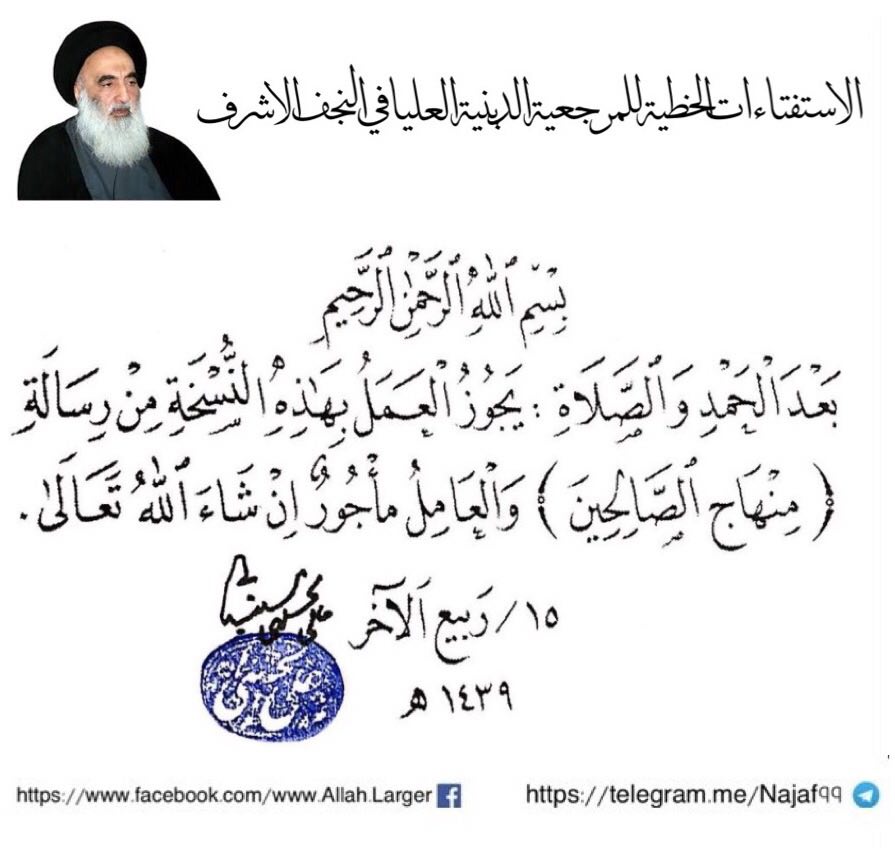 الاستفتاءات الخطية للمرجعية الدينية العليا في النجف الاشرف
بِسْمِ ٱللّٰهِ ٱلرَّحْمٰنِ ٱلرَّحِيمِ
بَعْدَ الْحَمْدِ وَالصَّلَاةِ : يَجُوزُ الْعَمَلُ بِهَٰذِهِ النُّسْخَةِ مِنْ رِسَالَةِ
﴿ مِنْهَاج الصَّالِحِينَ ﴾ وَالْعَامِلُ مأْجُورٌ إِنْ شَاءَ اللّٰهُ تَعَالَىٰ .
١٥/ رَبيع الآخر
١٤٣٩ هـ
https://www.facebook.com/www.Allah.Larger
https://telegram.me/Najaf٩٩